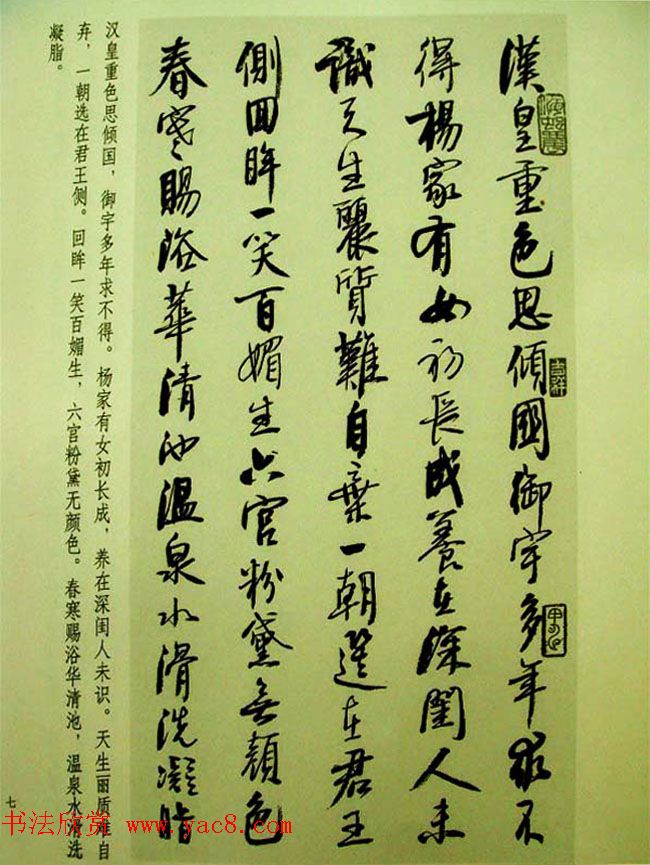 漢皇重色思傾國御宇多年求不
得楊家有女初長成養在深閨人未
識天生麗質難自棄一朝選在君王
側回眸一笑百媚生六宮粉黛無顏色
春寒賜浴華清池溫泉水滑洗凝脂
吉祥
汉皇重色思倾国，御宇多年求不得。杨家有女初长成，养在深闺人未识。天生丽质难自
弃，一朝选在君王侧。回眸一笑百媚生，六宫粉黛无颜色。春寒赐浴华清池，温泉水滑洗
凝脂。
七
书法欣赏 www.yac8.com